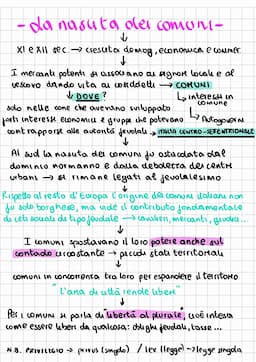 - La nascita dei comuni -
XI e XII sec → crescita demog, economica e comm.
I mercanti potenti si associano ai signori locali e al
vescovo dando vita ai cosiddetti → COMUNI
↓ DOVE?
↳ interessi in comune
solo nelle zone che avevano sviluppato
forti interessi economici e gruppi che potevano
↳ Autogoverni
contrapporsi alle autorità feudali → ITALIA CENTRO-SETTENTRIONALE
Al sud la nascita dei comuni fu ostacolata dal
dominio normanno e dalla debolezza dei centri
urbani → si rimane legati al feudalesimo
Rispetto al resto d'Europa l'origine dei comuni italiani non
fu solo borghese, ma vide il contributo fondamentale
di ceti sociali di tipo feudale → cavalieri, mercanti, giudici...
I comuni spostavano il loro potere anche sul
contado circostante → piccoli stati territoriali
comuni in concorrenza tra loro per espandere il territorio
"L'aria di città rende liberi"
Per i comuni si parla di "libertà al plurale", cioè intesa
come essere liberi da qualcosa: obblighi feudali, tasse...
N.B. PRIVILEGIO → privus (singolo) / lex (legge) → legge singola